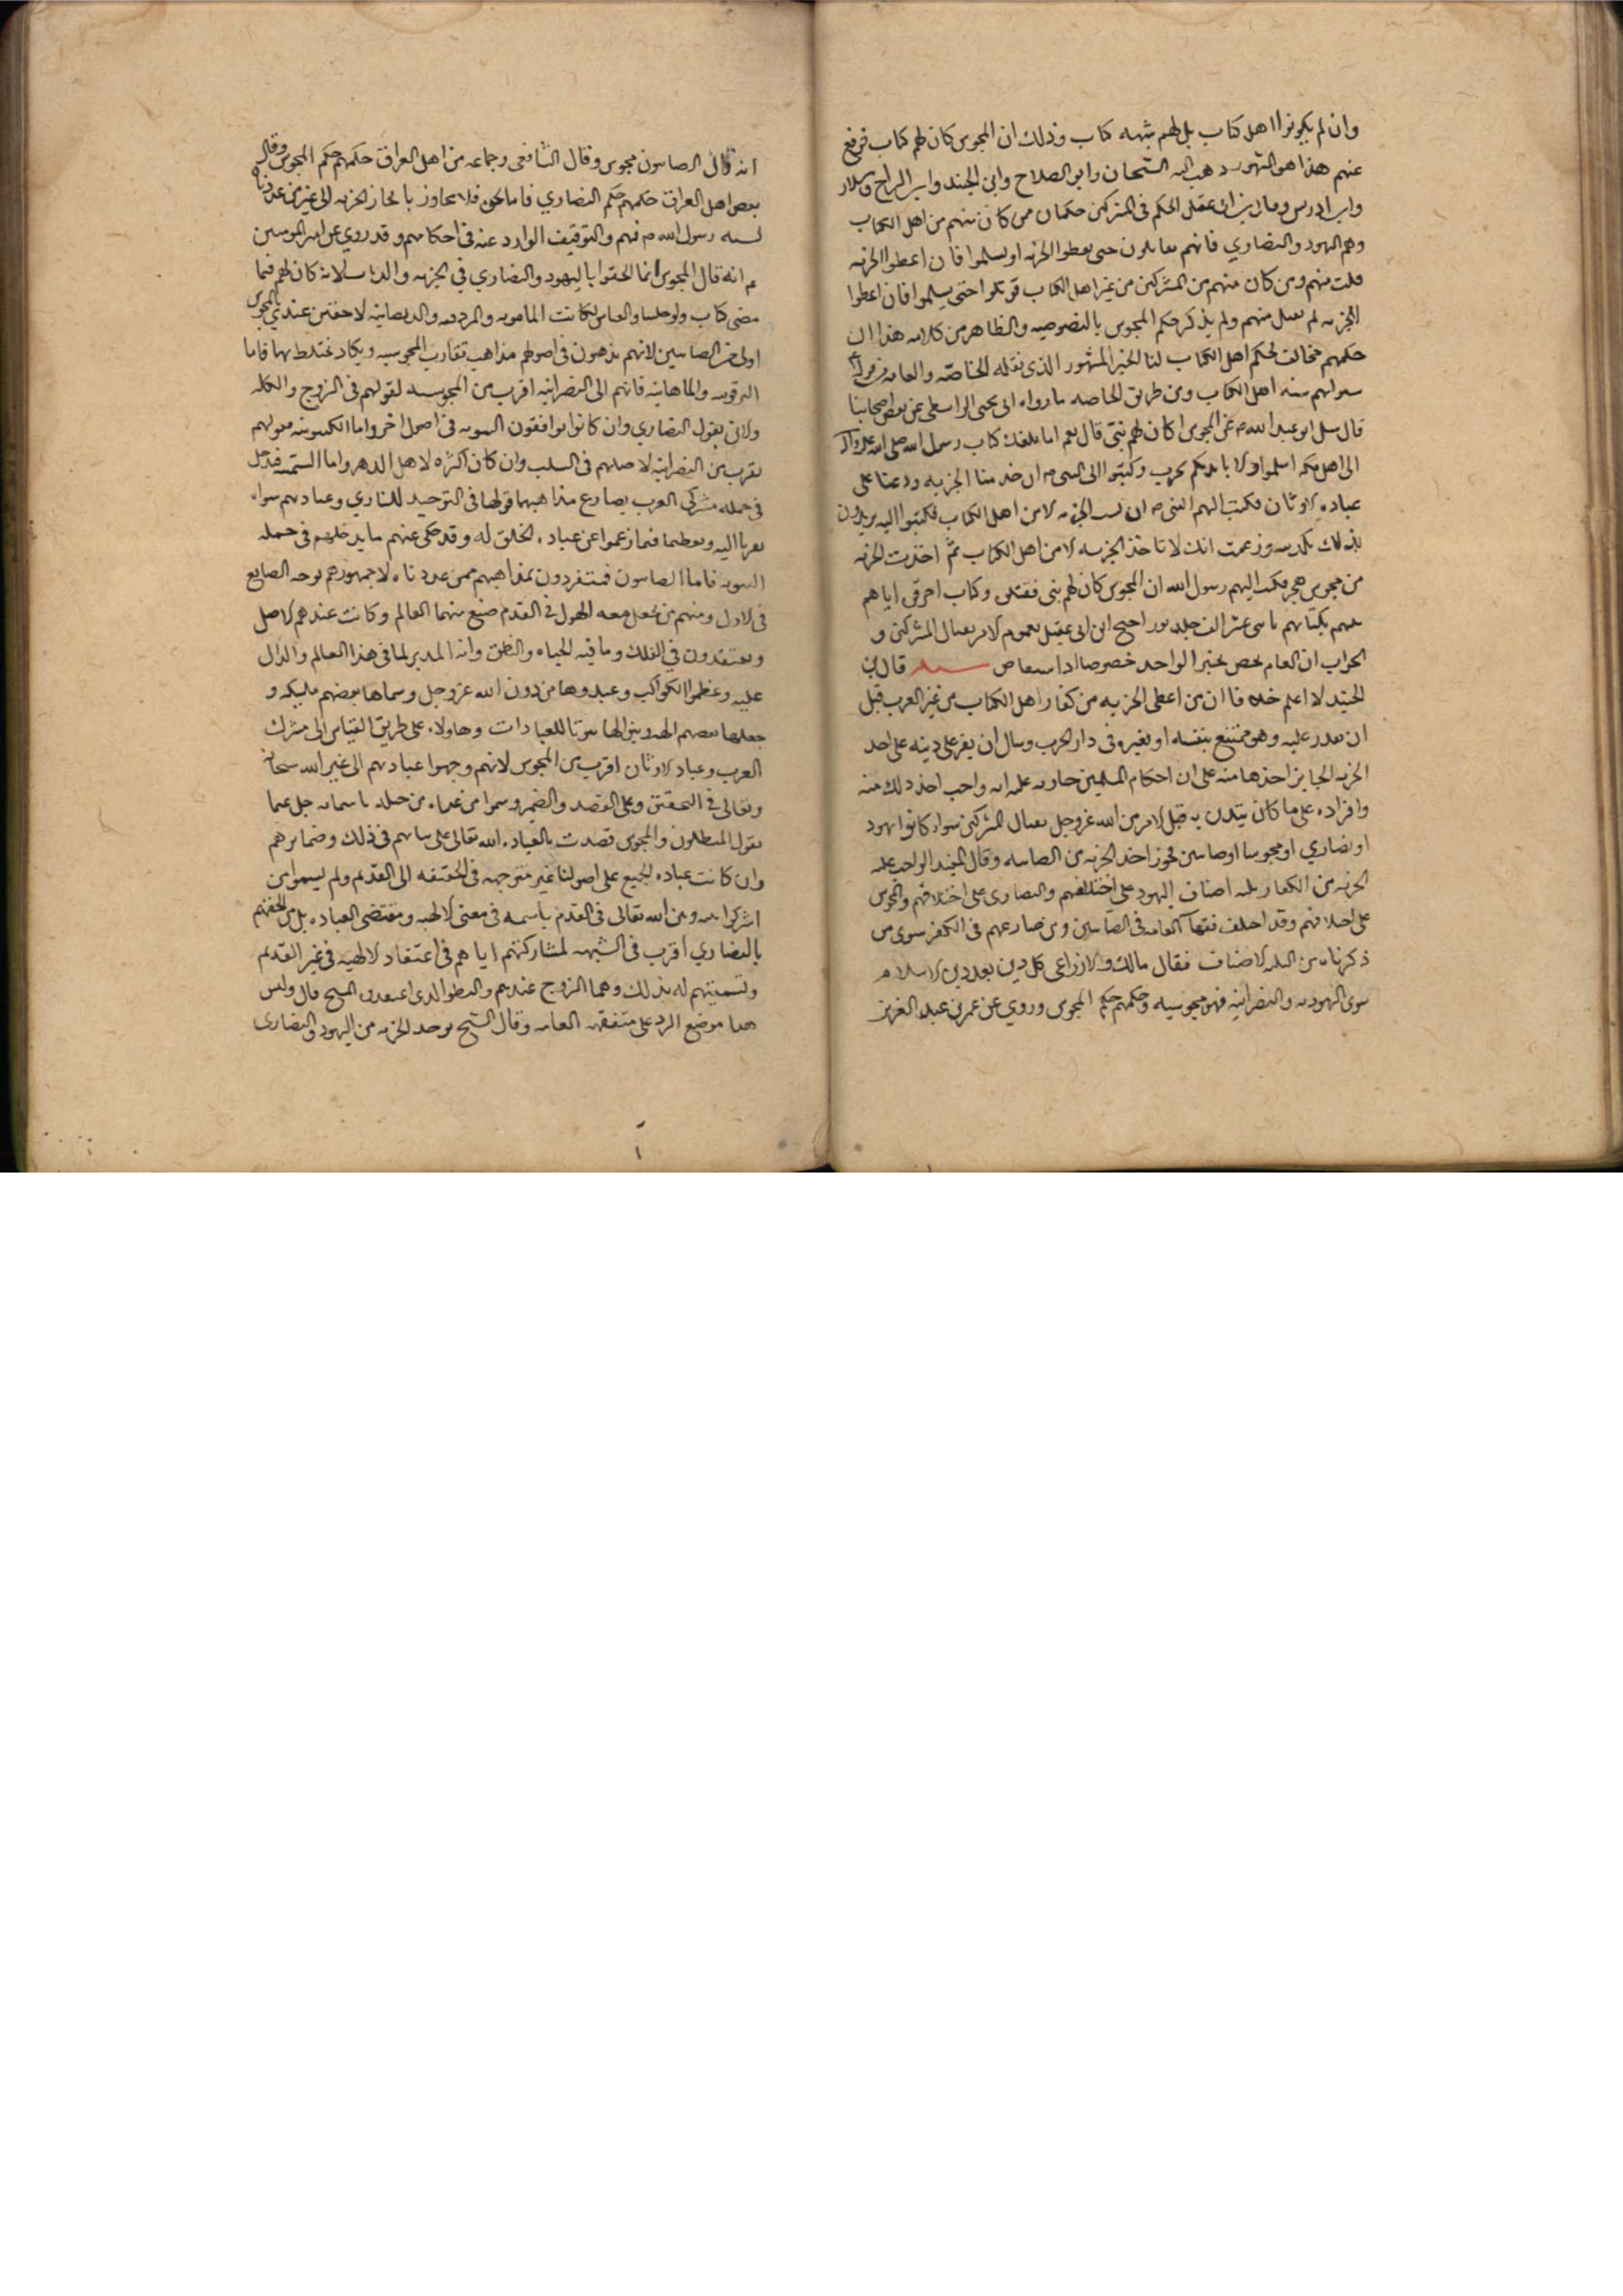 وان لم يكونوا اهل كتاب بل لهم شبهه كتاب وذلك ان المجوس كان لهم كتاب فرفع
عنهم هذا هو المشهور ذهب اليه الشيخان وابو الصلاح وابن الجنيد وابن البراج وسلار
وابن ادريس وقال ابن ابى عقيل الحكم فى المشركين حكمان من كان منهم من اهل الكتاب
وهم اليهود والنصاري فانهم يقاتلون حتى يعطوا الجزيه او يسلموا فان اعطوا الجزيه
قبلت منهم ومن كان منهم من المشركين من غير اهل الكتاب قوتلوا حتى يسلموا فان اعطوا
الجزيه لم يقبل منهم ولم يذكر حكم المجوس بالنصوصيه والظاهر من كلامه هذا ان
حكمهم مخالف لحكم اهل الكتاب لنا الخبر المشهور الذى نقله الخاصه والعامه من قوله
سنوا بهم سنه اهل الكتاب ومن طريق الخاصه ما رواه ابى يحيى الواسطى عن بعض اصحابنا
قال سئل ابو عبد الله م عن المجوس اكان لهم نبى قال نعم اما بلغك كتاب رسول الله صلى الله عليه واله
الى اهل مكه اسلموا والا نابذتكم بحرب وكتبوا الى النبى م ان خذ منا الجزيه ودعنا على
عباده الاوثان فكتب اليهم النبى م ان لست اخذ الجزيه الا من اهل الكتاب فكتبوا اليه يريدون
بذلك تكذيبه وزعمت انك لا تاخذ الجزيه الا من اهل الكتاب ثم اخذت الجزيه
من مجوس هجر فكتب اليهم رسول الله ان المجوس كان لهم نبى فقتلوه وكتاب احرقوه اتاهم
نبيهم بكتابهم فى اثنى عشر الف جلد ثور احتج ابن ابى عقيل بعموم الامر بقتال المشركين و
الجواب ان العام يخص بخبر الواحد خصوصا اذا استفاض مسئله قال ابن
الجنيد لا اعلم خلافا ان من اعطى الجزيه من كفار اهل الكتاب من غير العرب قبل
ان يقدر عليه وهو ممتنع بنفسه او بغيره فى دار الحرب وسال ان يقر على دينه على اخذ
الجزيه الجايز اخذها منه على ان احكام المسلمين جاريه عليه انه واجب اخذ ذلك منه
واقراره على ما كان يتدين به قبل الامر من الله عز وجل بقتال المشركين سواء كانوا يهود
او نصاري او مجوسا او صابئين فجوز اخذ الجزيه من الصابئه وقال المفيد الواجب عليه
الجزيه من الكفار ثلثه اصناف اليهود على اختلافهم والنصارى على اختلافهم والمجوس
على اختلافهم وقد اختلف فقهاء العامه فى الصابئين ومن ضارعهم فى الكفر سوى من
ذكرناه من الثلثه الاصناف فقال مالك والاوزاعى كل دين بعد دين الاسلام
سوى اليهوديه والنصرانيه فهو مجوسيه وحكمهم حكم المجوس وروي عن عمر بن عبد العزيز
انه قال الصابئون مجوس وقال الشافعى وجماعه من اهل العراق حكمهم حكم المجوس وقال
بعض اهل العراق حكمهم حكم النصاري فاما نحن فلا نتجاوز بايجاب الجزيه الى غير من عددناه
لسنه رسول الله م فيهم والتوقيف الوارد عنه فى احكامهم وقد روي عن امير المومنين
ع انه قال المجوس انما الحقوا باليهود والنصاري فى الجزيه والديات لانه كان لهم فيما
مضى كتاب ولو خلينا والقياس لكانت المانويه والمزدقيه والديصانيه لاحقين عندي بالمجوس
اولى من الصابئين لانهم يذهبون فى اصولهم مذاهب تقارب المجوسيه ويكاد تختلط بها فاما
المرقونيه والماهانيه فانهم الى النصرانيه اقرب من المجوسيه لقولهم فى الروح والكلمه
والابن بقول النصاري وان كانوا يوافقون الثنويه فى اصول اخر واما الكينونيه فقولهم
يقرب من النصرانيه لاصلهم فى التثليث وان كان اكثره لاهل الدهر واما السمنيه فتدخل
فى جمله مشركى العرب يضارع مذاهبها قولها فى التوحيد للباري وعبادتهم سواه
تقربا اليه وتعظيما فيما زعموا عن عباده الخلق له وقد حكى عنهم ما يدخلهم فى جمله
الثنويه فاما الصابئون فمنفردون بمذاهبهم ممن عددناه لان جمهورهم توحد الصانع
فى الازل ومنهم من يجعل معه الهيولى فى القدم صنع منها العالم وكانت عندهم الاصل
ويعتقدون فى الفلك وما فيه الحياه والنطق وانه المدبر لما فى هذا العالم والدال
عليه وعظموا الكواكب وعبدوها من دون الله عز وجل وسماها بعضهم ملئكه و
جعلها بعضهم الهه وبنوا لها بيوتا للعبادات وهاولاء على طريق القياس الى مشرك
العرب وعباد الاوثان اقرب من المجوس لانهم وجهوا عبادتهم الى غير الله سبحانه
وتعالى فى التحقيق وعلى القصد والضمير وسموا من عداه من خلقه باسمائه جل عما
يقول المبطلون والمجوس قصدت بالعباده الله تعالى على نياتهم فى ذلك وضمائرهم
وان كانت عباده الجميع على اصولنا غير متوجهه فى الحقيقه الى القديم ولم يسموا من
اشركوا بينه وبين الله تعالى فى القدم باسمه فى معنى الالهيه ومقتضى العباده بل من الحقهم
بالنصاري اقرب فى الشبهه لمشاركتهم اياهم فى اعتقاد الالهيه فى غير القديم
وتسميتهم له بذلك وهما الروح عندهم والنطق الذى اعتقدوه المسيح قال وليس
هذا موضع الرد على متفقهه العامه وقال الشيخ يوخذ الجزيه من اليهود والنصارى